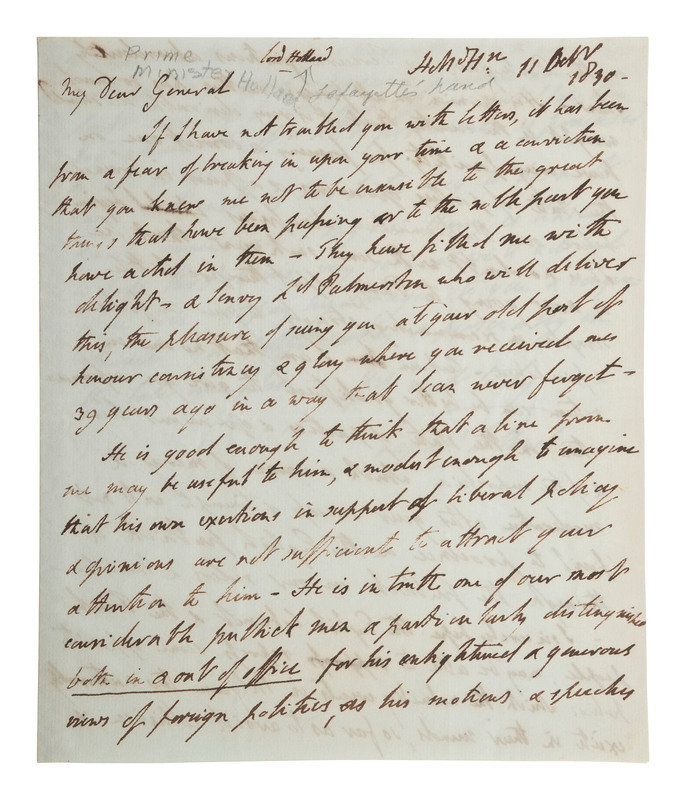 Prime Minister Holland
Lord Holland
Lafayette's hand
11 Octr 1830 -
My Dear General
If I have not troubled you with letters, it has been
from a fear of breaking in upon your time & a conviction
that you knew me not to be insensible to the great
things that have been passing or to the noble part you
have acted in them - They have filled me with
delight - & I envy Ld Palmerston who will deliver
this, the pleasure of seeing you at your old post of
honour consistency & glory where you received me
39 years ago in a way that I can never forget -
He is good enough to think that a line from
me may be useful to him, & modest enough to imagine
that his own exertions in support of liberal policy
& opinions are not sufficient to attract your
attention to him - He is in truth one of our most
considerable publick men & particularly distinguished
both in & out of office for his enlightened & generous
views of foreign politics, as his motions & speeches